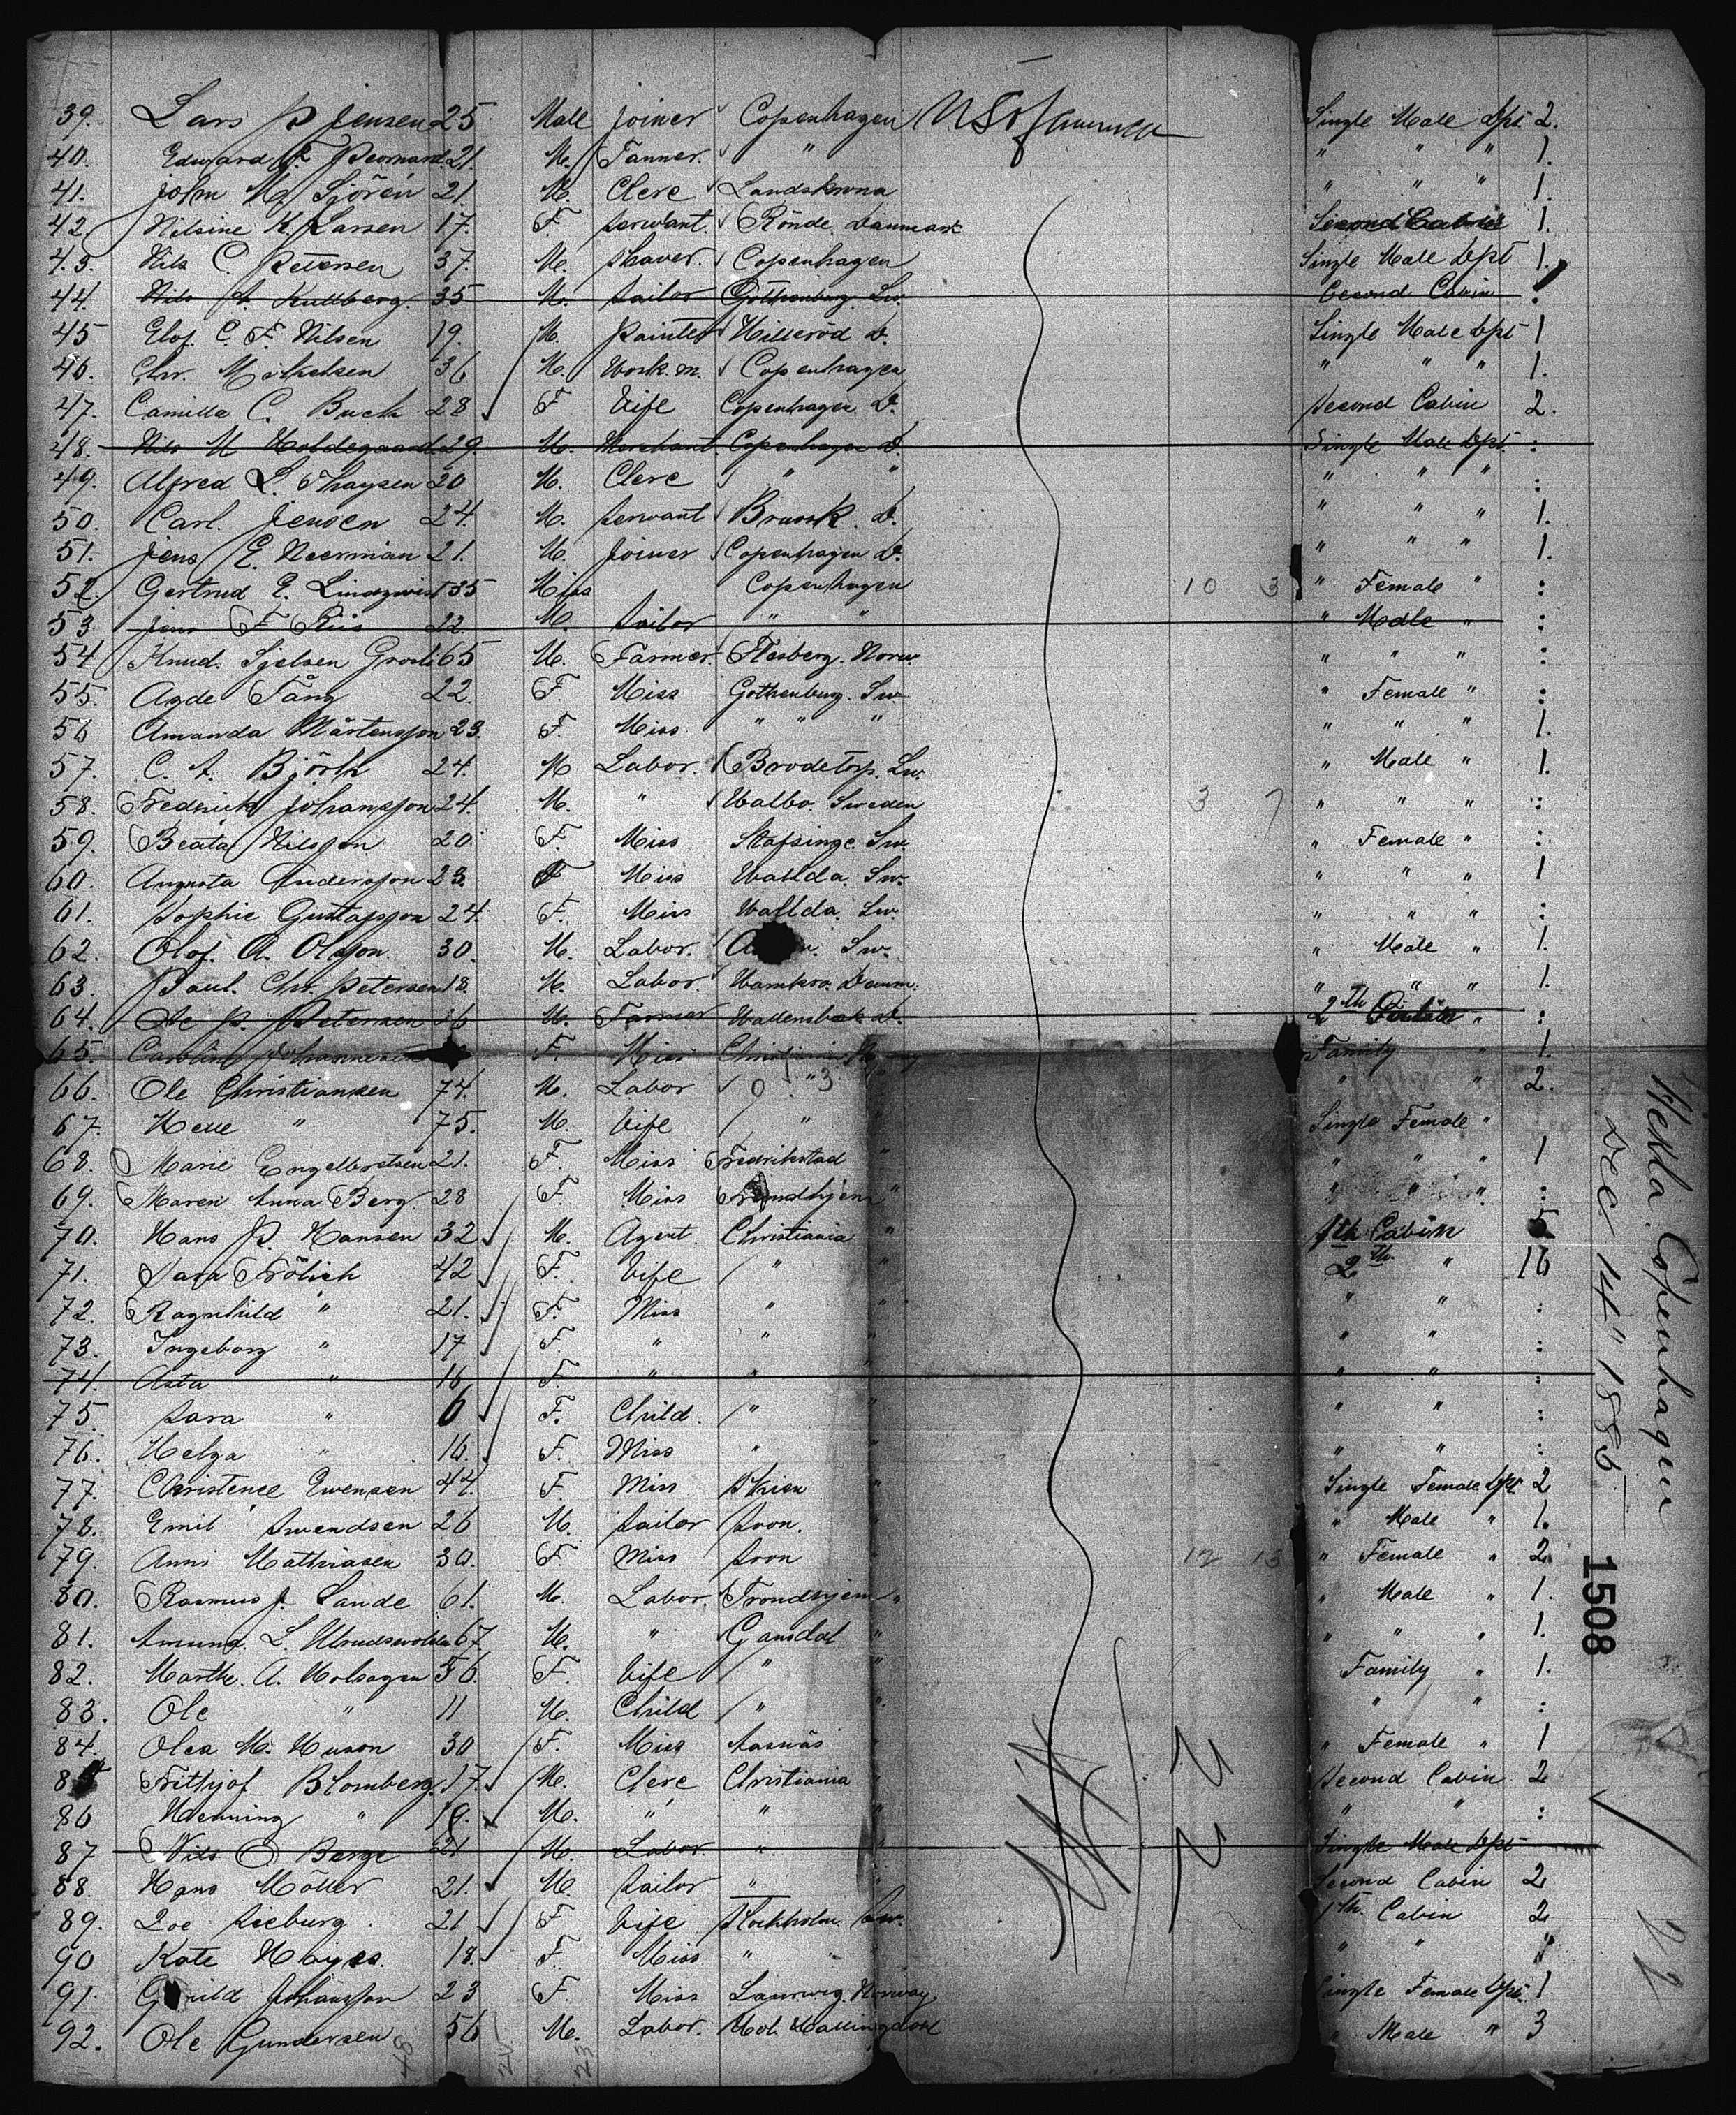 39. Lars P Jensen 25 Male Joiner Copenhagen US of America Single Male dpt 2.
40. Edward F. 21. M. Tanner. " " " " 1.
41. John M. Sjörén 21. M. Clerc Landskrona " " " 1.
42. Nilsine K. Larsen 17. F. servant. Rönde Danmark Second Cabin 1.
43. Nils C. Petersen 37. M. Copenhagen Single Male dpt 1.
44. Nils A. Kullberg. 35 M. sailor Gothenburg Sw. Second Cabin :
45 Elof. C. F. Nilsen 19. M. painter Hilleröd D. Single Male dpt 1
46. Chr. Mikelsen 36 M. Work.m. Copenhagen " " " 1.
47. Camilla C. Buch 28 F Vife Copenhagen D. Second Cabin 2.
48. Nils M Holdegaard 29. M. Merchant. Copenhagen D. Single Male dpt. :
49. Alfred L. Thaysen 20 M. Clerc " " " " " :
50. Carl. Jensen 24. M. servant D. " " " 1.
51. Jens E. Neerman 21. M. Joiner Copenhagen D. " " " 1.
52. Gertrud E. Lindqwist 35 Miss Copenhagen 10 3 " Female " :
53. Jens F Riis 22. M. sailor " " " Male " :
54 Knud. 65 M. Farmer. Flesberg. Norw. " " " :
55. Agde Fång 22. F. Miss Gothenburg. Sw. " Female " :
56 Amanda Mårtensson 23. F. Miss " " " " " " 1.
57. C. A. Björk 24. M Labor. Brodetorp. Sw. " Male " 1.
58. Frederick Johansson 24. M. " Walbo. Sweden 3 7 " " " :
59. Beata Nilsson 20 F. Miss Stafsinge. Sw " Female " :
60. Augusta Andersson 23. F Miss Wallda. Sw. " " " 1
61. Sophie Gustafsson 24. F. Miss Wallda. Sw. " " " :
62. Olof. A. Olsson. 30. M. Labor. Sw. " Male " 1.
63. Paul. Chr. Petersen 18. M. Labor. Wamkro. Danm. " " " 1.
64. Ole P. Petersen 36 M. Farmer Wallensbek D. 2th Cabin " :
65. Caroline Johannesen F. Miss Christiania Family " 1.
66. Ole Christiansen 74. M. Labor " " " 2.
67. Helle " 75. M. Vife " " Single Female "
68. Marie Engelbretsen 21. F. Miss Fredrikstad " " " " 1
69. Maren Anna Berg 28 F. Miss Trondhjem " " " " :
70. Hans P. Hansen 32 M. Agent. Christiania " 1th Cabin 5
71. Sara Frölich 42 F. Vife " " 2th " 16
72. Ragnhild " 21. F. Miss " " " " :
73. Ingeborg " 17 F. " " " " :
74. Asta " 16 F. " " " " " :
75. Sara " 6 F. Child. " " " " :
76. Helga " 16. F. Miss " " " " :
77. Christence Ewensen 44. F. Miss Skien " Single Female dpt 2
78. Emil Swendsen 26 M. sailor " " Male " 1.
79. Anni Mathiasen 30. F. Miss 12 13 " Female " 2
80. Rasmus J. Sande 61. M. Labor. Trondhjem " " Male " 1.
81. Amund. L. 67. M. " Gausdal " " " " 1.
82. Marthe. A. 56. F. Vife " " Family " 1.
83. Ole " 11 M. Child " " " " :
84. Olea M. 30 F. Miss Aasnäs " " Female " 1
85 Frithjof Blomberg. 17. M. Clerc Christiania " Second Cabin 2
86 Henning " 19. M. " " " " " :
87 Nils O Berge 21 M. Labor. " " Single Male dpt
88. Hans Möller 21. M. sailor " " Second Cabin 2
89. Zoe 21 F Vife Stockholm. Sw. 1th. Cabin 2
90 Kate Hayes. 18. F. Miss " " " "
91. Johansson 23 F. Miss Laurwig. Norway. Single Female dpt. 1
92. Ole Gundersen 56 M. Labor. Hol. Hallingdahl " Male " 3
48 25 23
Hekla. Copenhagen
Dec 14" 1886
1508
22